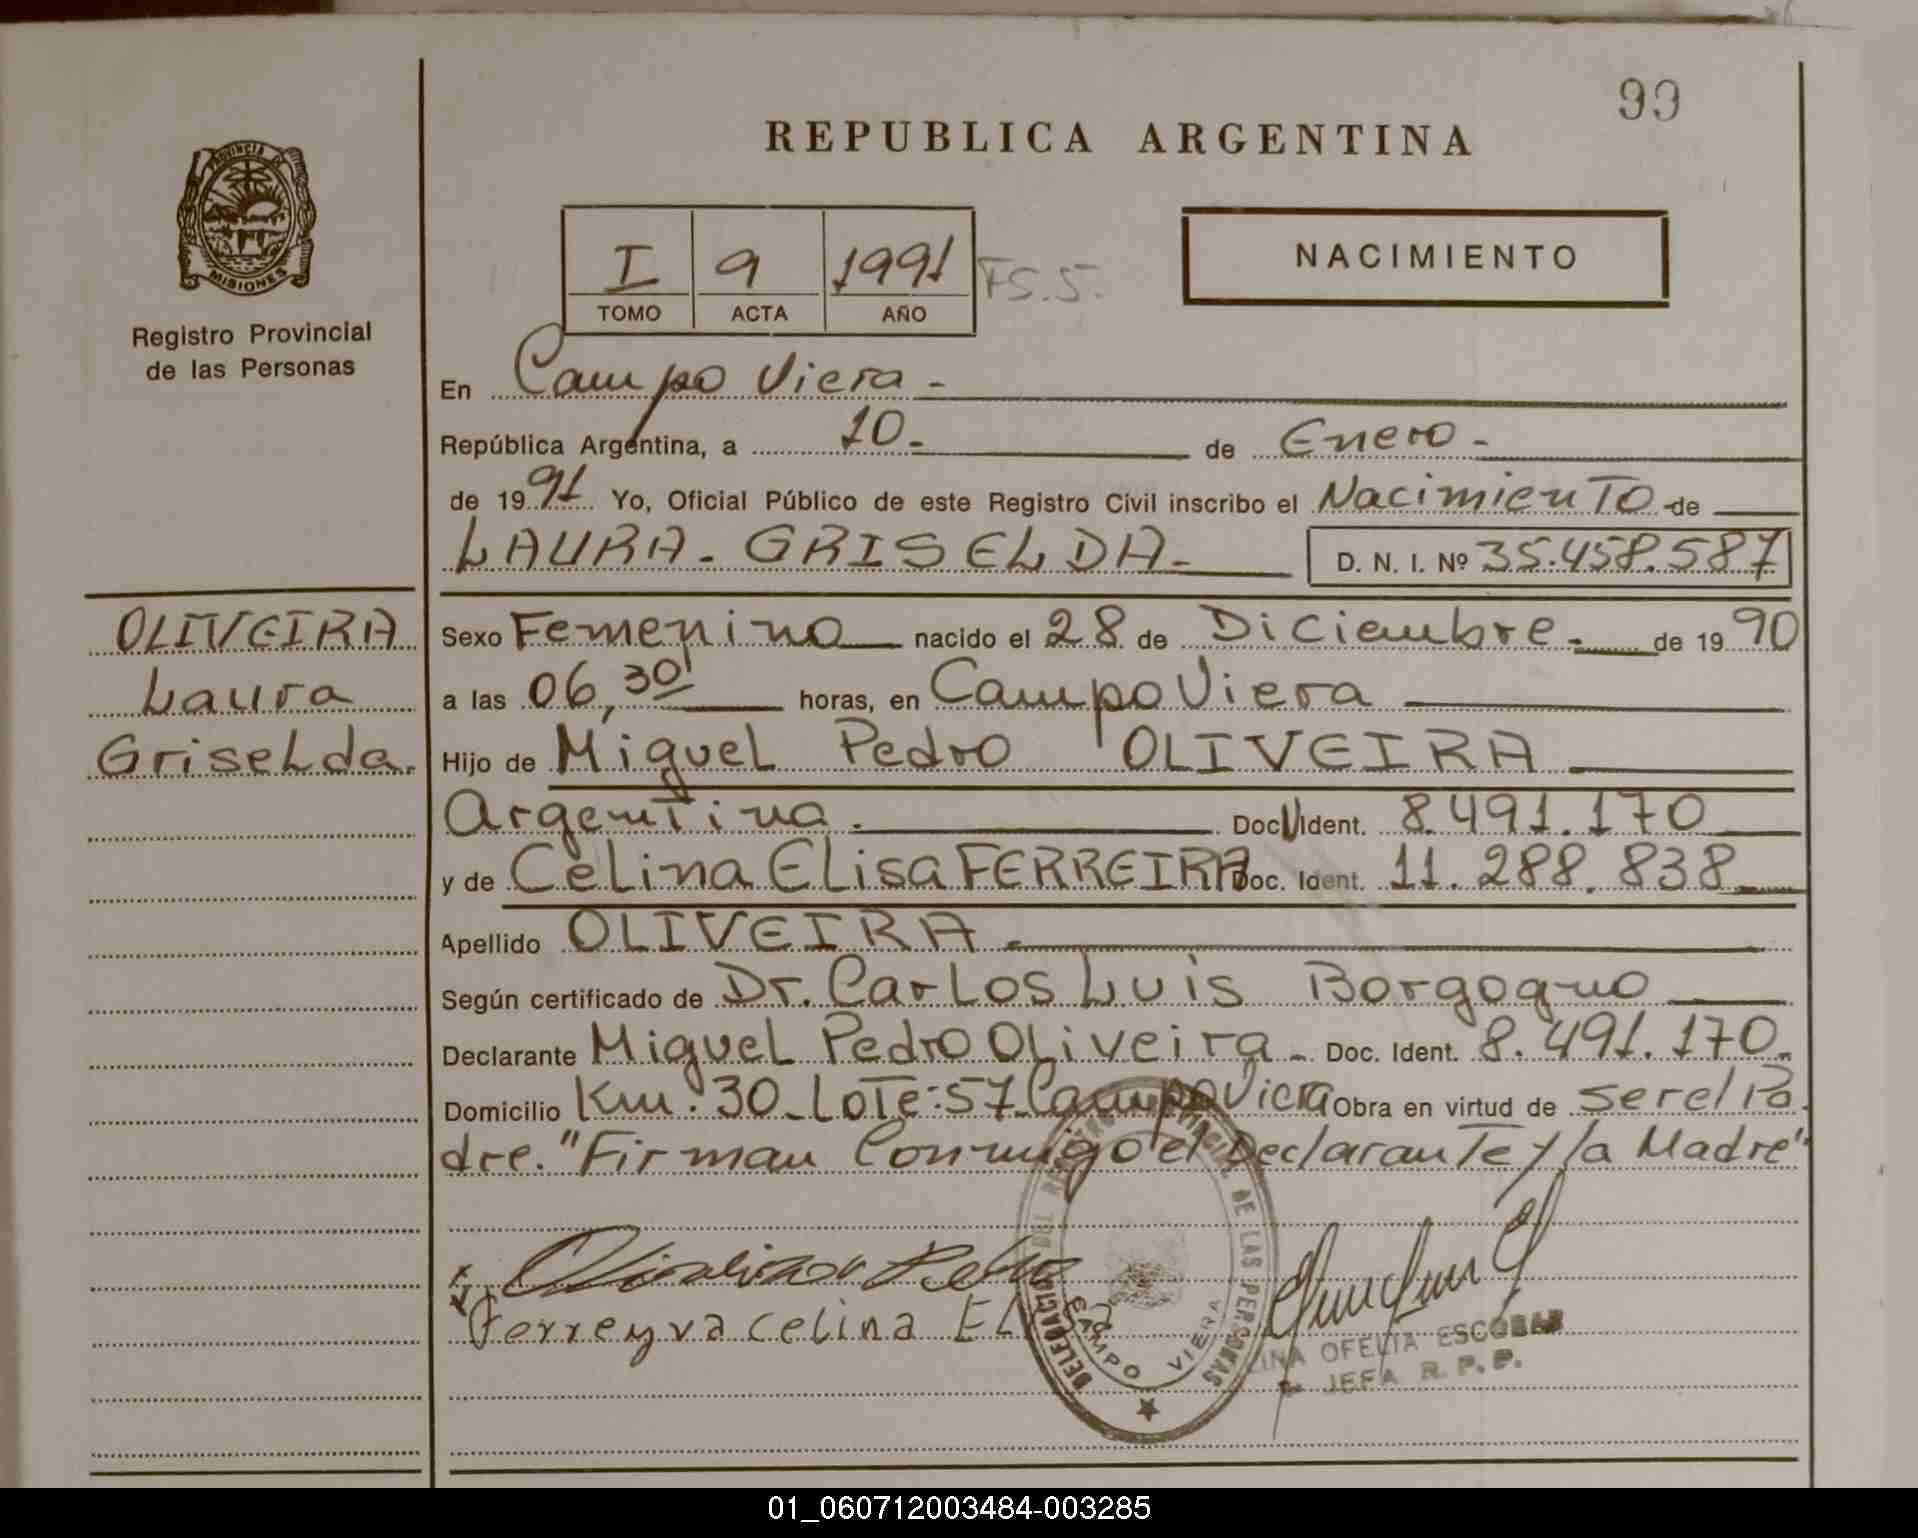 99
REPUBLICA ARGENTINA
PROVINCIA DE
MISIONES
Registro Provincial
de las Personas
I 9 1991 FS.5.
TOMO ACTA AÑO
NACIMIENTO
En Campo Viera -
República Argentina, a 10.- de Enero -
de 1991 Yo, Oficial Público de este Registro Civil inscribo el Nacimiento de
LAURA - GRISELDA - D. N. I. Nº 35.458.587
OLIVEIRA
Laura
Griselda.
Sexo Femenino nacido el 28 de Diciembre - de 1990
a las 06,30' horas, en Campo Viera
Hijo de Miguel Pedro OLIVEIRA
Argentina. Doc. Ident. 8.491.170
y de Celina Elisa FERREIRA Doc. Ident. 11.288.838
Apellido OLIVEIRA.
Según certificado de Dr. Carlos Luis Borgogno
Declarante Miguel Pedro Oliveira - Doc. Ident. 8.491.170.
Domicilio Km. 30 - Lote: 57 Campo Viera Obra en virtud de ser el Pa
dre. "Firman Conmigo el Declarante y la Madre"
Ferreyra celina
DELEGACION DEL REGISTRO PROVINCIAL DE LAS PERSONAS
CAMPO VIERA
OFELIA ESCOBAR
JEFA R.P.P.
01_060712003484-003285